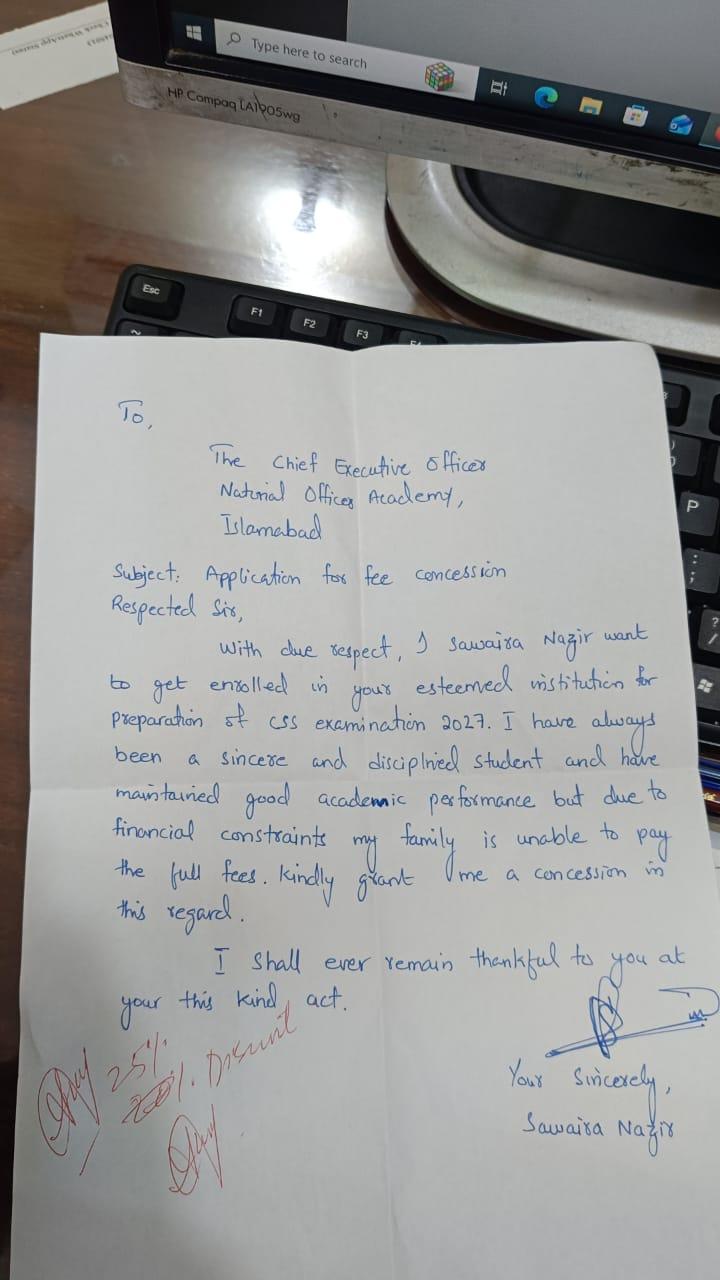 Type here to search
HP Compaq LA1905wg
Esc
F1
F2
F3
P
To,
The Chief Executive Officer
National Officers Academy,
Islamabad
Subject: Application for fee concession
Respected Sir,
With due respect, I Sawaira Nazir want
to get enrolled in your esteemed institution for
preparation of CSS examination 2027. I have always
been a sincere and disciplined student and have
maintained good academic performance but due to
financial constraints my family is unable to pay
the full fees. Kindly grant me a concession in
this regard.
I shall ever remain thankful to you at
your this kind act.
Your Sincerely,
Sawaira Nazir
25%
% Discount